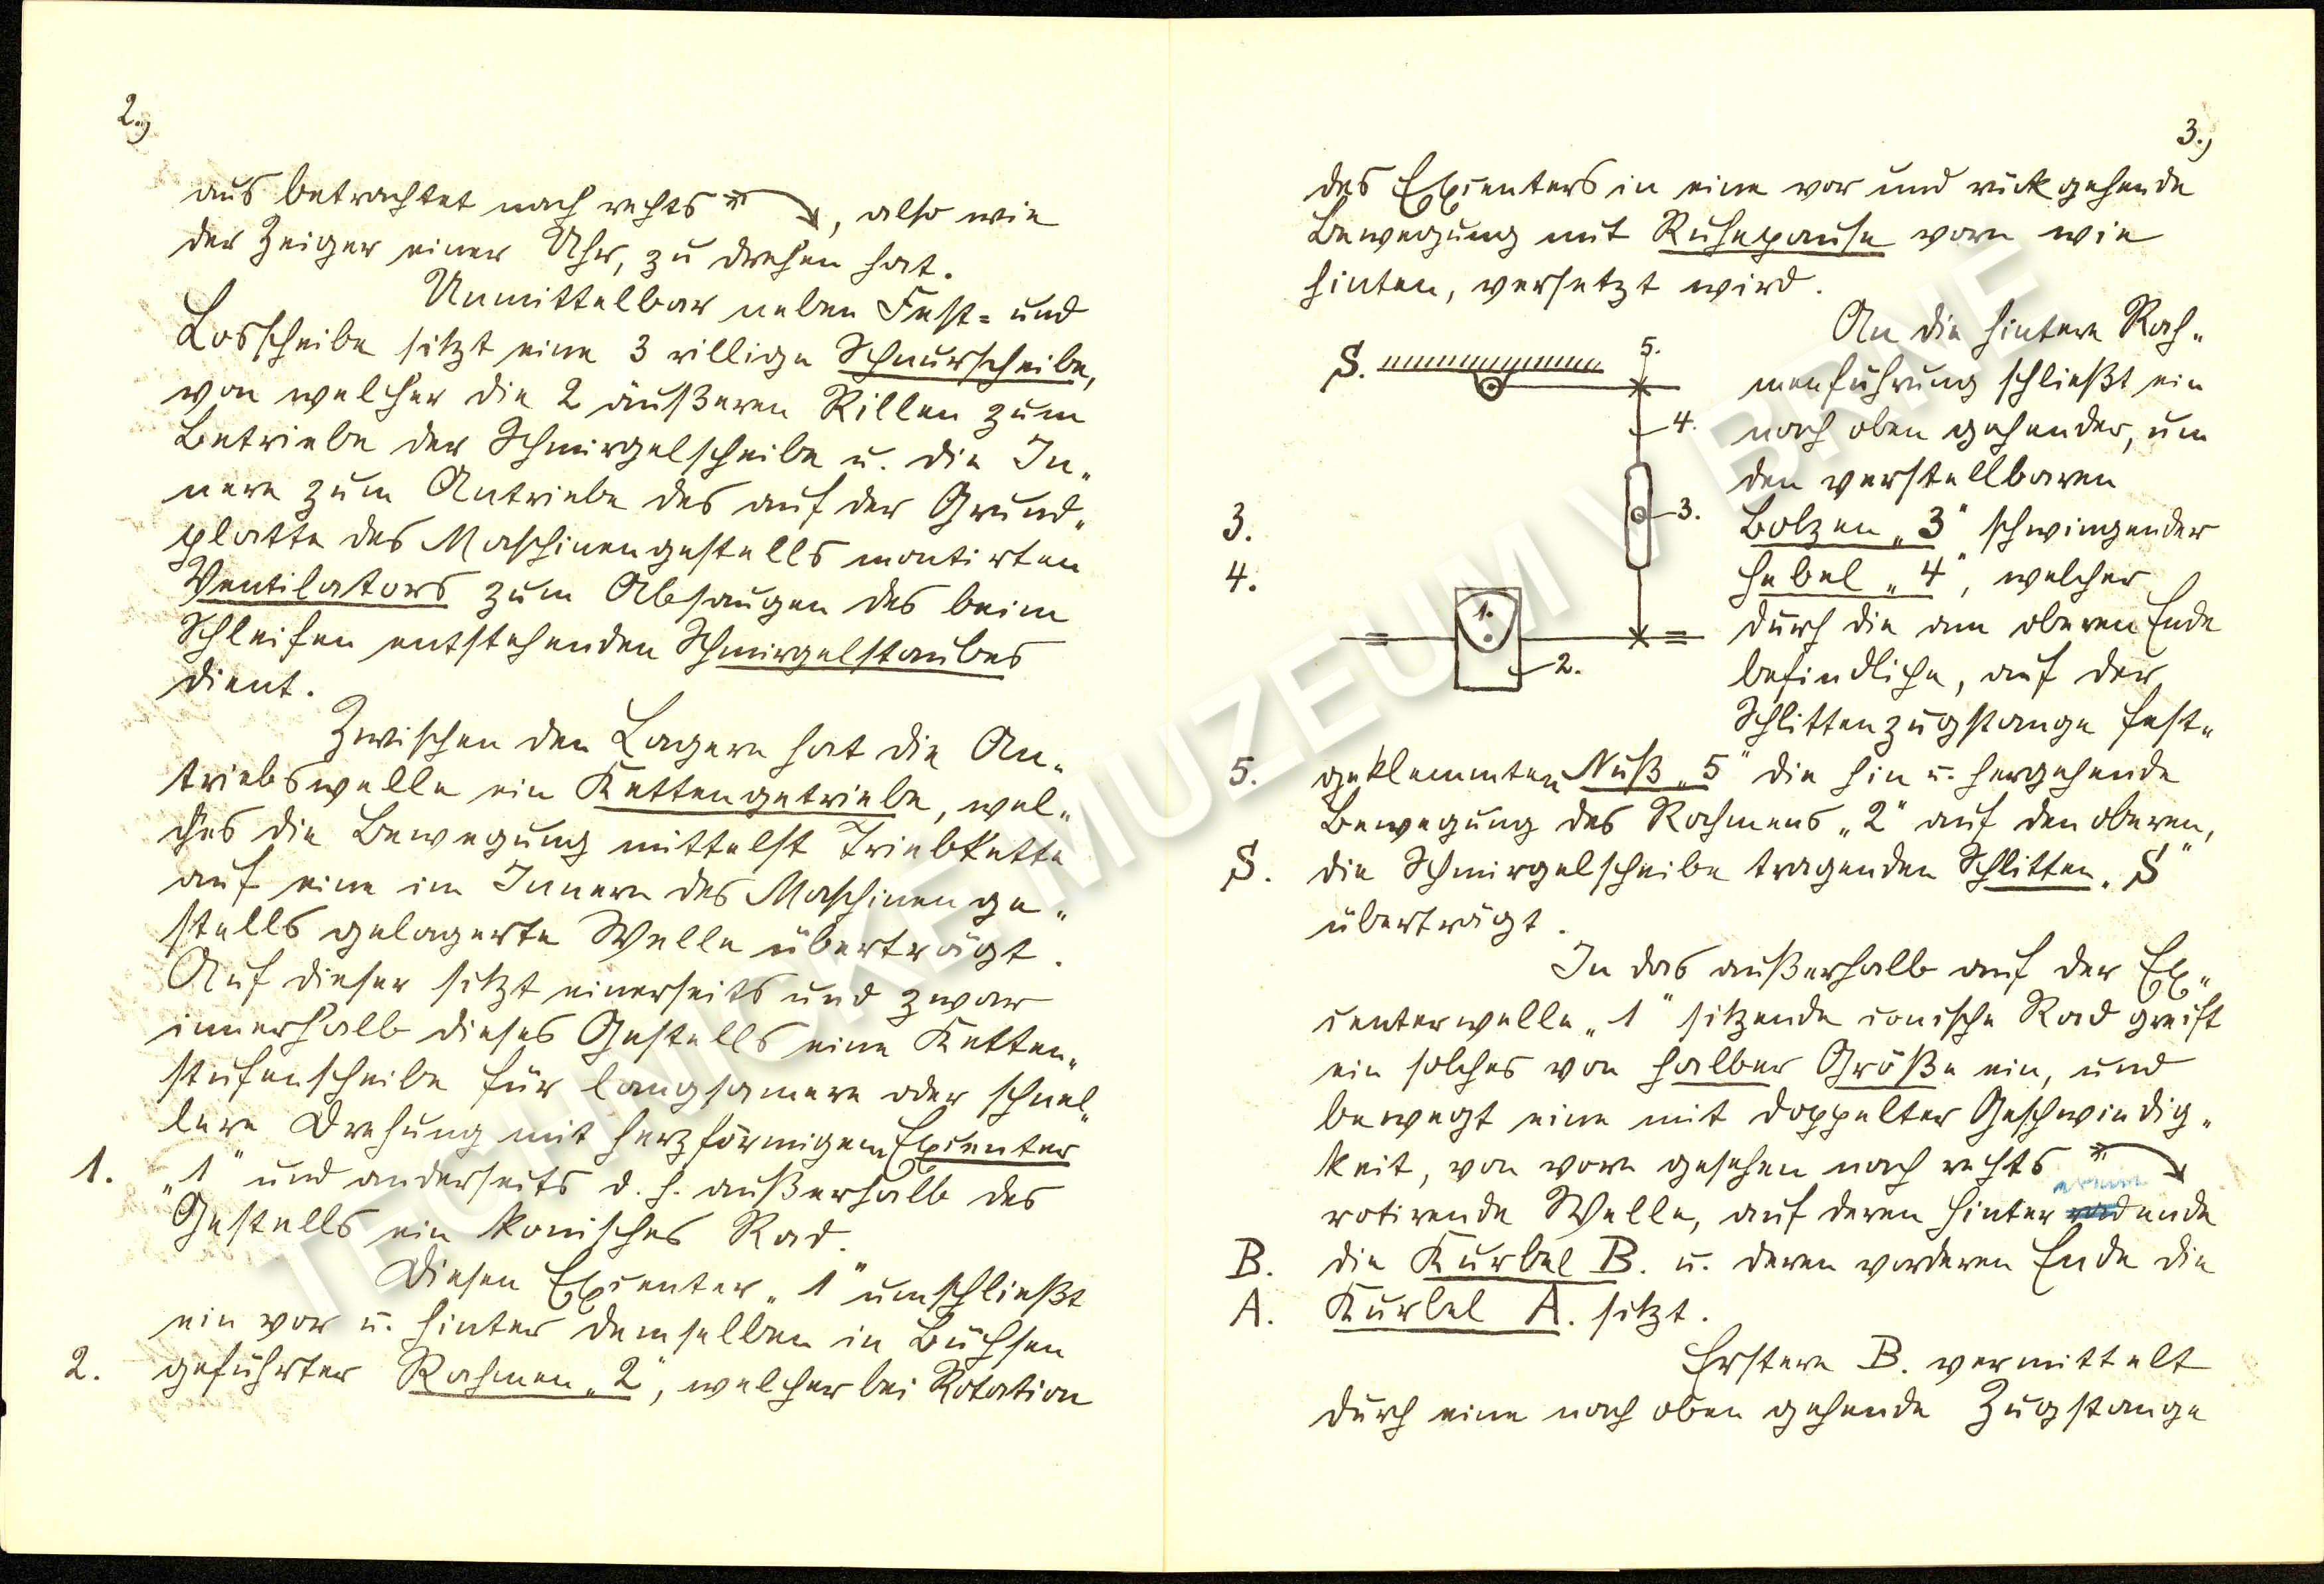 2.)
aus betrachtet nach rechts, also wie
der Zeiger einer Uhr, zu drehen hat.
Unmittelbar neben Fest= und
Losscheibe sitzt eine 3 rillige Schnurscheibe,
von welcher die 2 äußeren Rillen zum
Betriebe der Schmirgelscheibe u. die In„
nere zum Antriebe des auf der Grund„
platte des Maschinengestells montirten
Ventilators zum Absaugen des beim
Schleifen entstehenden Schmirgelstaubes
dient.
Zwischen den Lagern hat die An„
triebswelle ein Kettengetriebe, wel„
ches die Bewegung mittelst Triebkette
auf eine im Innern des Maschinenge„
stells gelagerte Welle überträgt.
Auf dieser sitzt einerseits und zwar
innerhalb dieses Gestells eine Ketten„
stufenscheibe für langsamere oder schnel„
lere Drehung mit herzförmigem Excenter
1. „1“ und anderseits d. h. außerhalb des
Gestells ein konisches Rad.
Diesen Excenter „1“ umschließt
ein vor u. hinter demselben in Büchsen
2. geführter Rahmen „2“, welcher bei Rotation
3.)
des Excenters in eine vor und rückgehende
Bewegung mit Ruhepause vorn wie
hinten, versetzt wird.
An die hintere Rah„
menführung schließt ein
nach oben gehender, um
den verstellbaren
3. Bolzen „3“ schwingender
4. Hebel „4“, welcher
durch die am oberen Ende
befindliche, auf der
Schlittenzugstange fest„
5. geklemmten Nuß „5“ die hin u. hergehende
Bewegung des Rahmens „2“ auf den oberen,
S. die Schmirgelscheibe tragenden Schlitten „S“
überträgt.
S.
5.
4.
3.
1.
2.
In das außerhalb auf der Ex„
centerwelle „1“ sitzende conische Rad greift
ein solches von halber Größe ein, und
bewegt eine mit doppelter Geschwindig„
keit, von vorn gesehen nach rechts
rotirende Welle, auf deren hinter ende
B. die Kurbel B. u. deren vorderen Ende die
A. Kurbel A. sitzt.
Erstere B. vermittelt
durch eine nach oben gehende Zugstange
TECHNICKÉ MUZEUM V BRNĚ